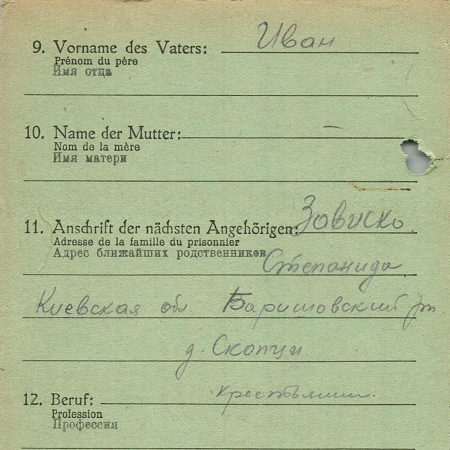 9. Vorname des Vaters: Иван
Prénom du père
Имя отца
10. Name der Mutter: —
Nom de la mère
Имя матери
11. Anschrift der nächsten Angehörigen: Зовиско
Adresse de la famille du prisonnier
Адрес ближайших родственников Степанида
Киевская обл Баришовский рн
д. Скопци
12. Beruf: крестьянин
Profession
Профессия